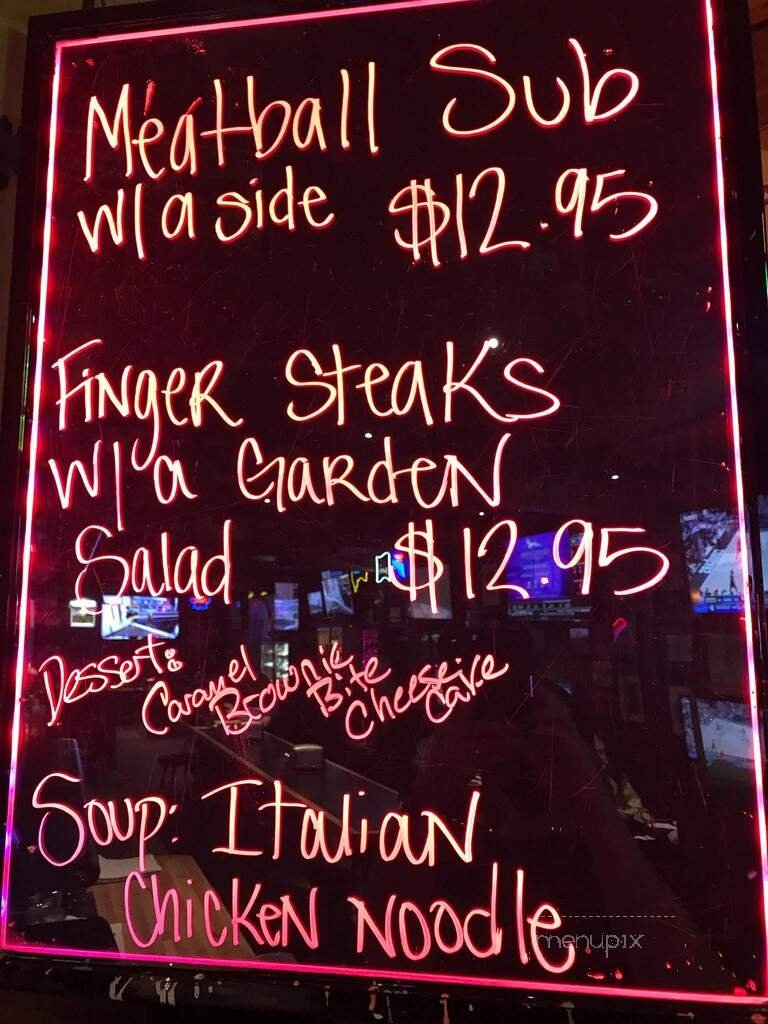 Meatball Sub
w/a side $12.95
Finger Steaks
w/a Garden
Salad $12.95
Dessert: Caramel Brownie Bite Cheesecake
Soup: Italian
Chicken Noodle
menupix